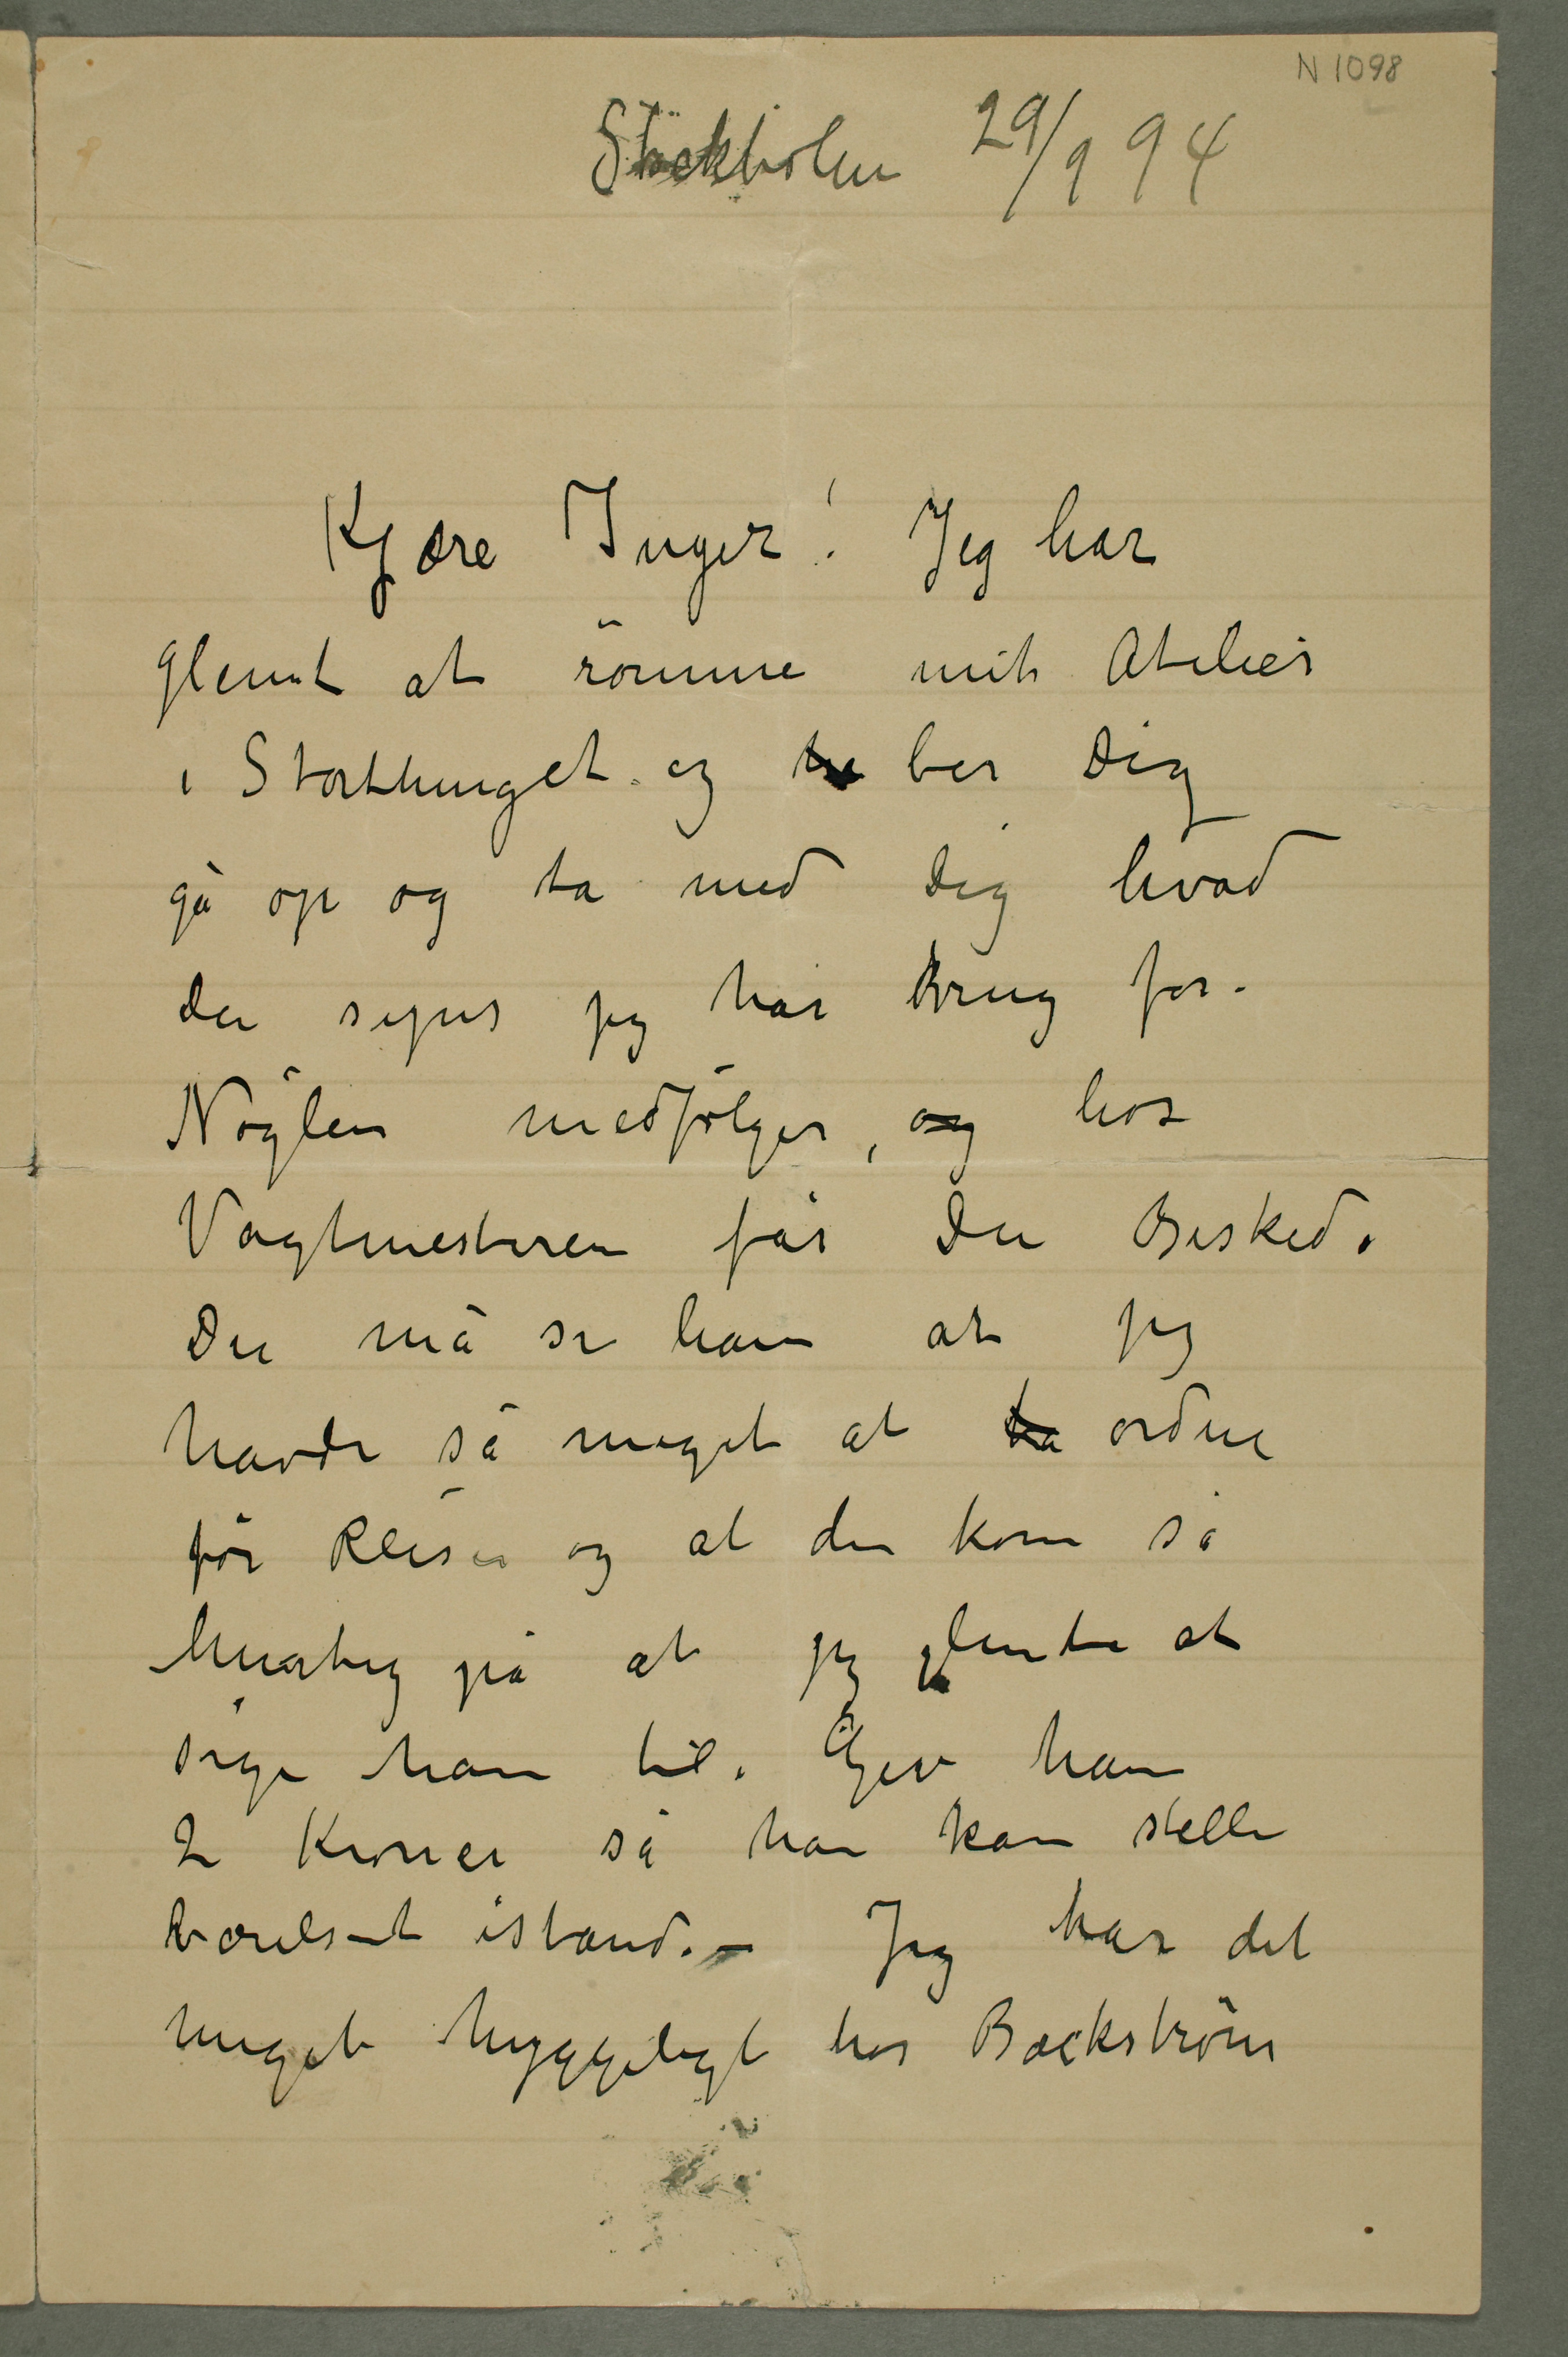 N 1098
Stockholm 29/9 94
Kjære Inger! Jeg har
glemt at römme mit Atelier
i Storthinget og ber Dig
gå op og ta med Dig hvad
du synes jeg har Brug for.
Nöglen medfölger, og hos
Vagtmesteren får Du Besked.
Du må si ham at jeg
havde så meget at ta ordne
för Reisen og at den kom så
hurtig på at jeg glemte at
sige ham til. Giv ham
2 Kroner så han kan stelle
værelset istand. – Jeg har det
meget hyggeligt hos Backström